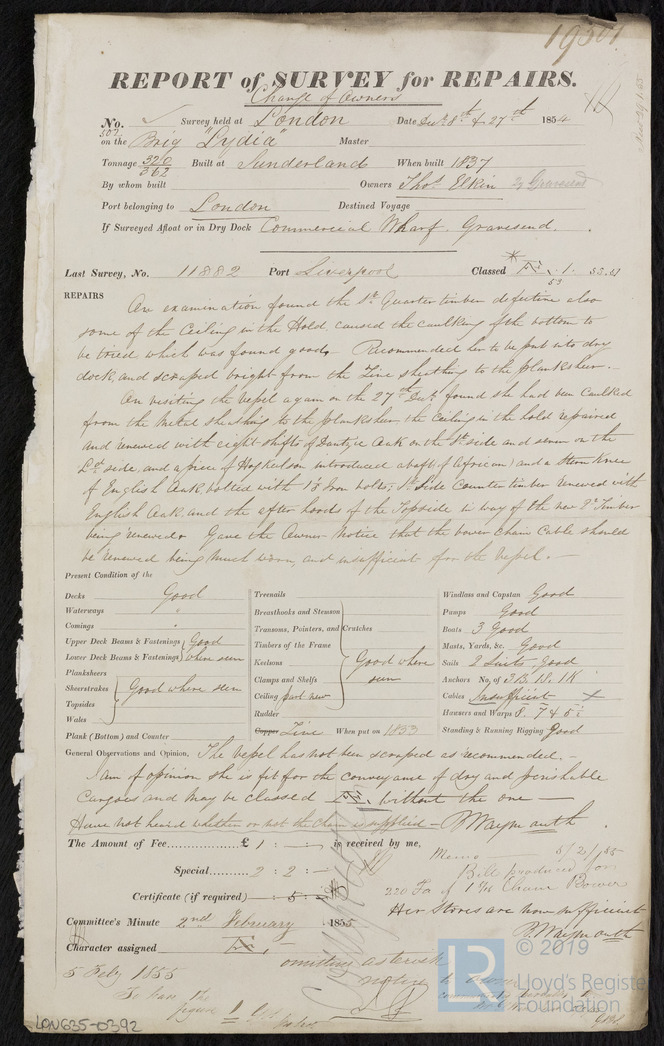 19501
REPORT of SURVEY for REPAIRS.
Change of Owners
No. Survey held at London Date Decr 8th & 27th 1854
502
on the Brig "Lydia" Master
Tonnage 320/362 Built at Sunderland When built 1837
By whom built Owners Thos Elkin of Gravesend
Port belonging to London Destined Voyage
If Surveyed Afloat or in Dry Dock Commercial Wharf Gravesend.
Last Survey, No. 11882 Port Liverpool Classed Æ 1 53
REPAIRS
On examination found the St Quarter timber defective also
some of the Ceiling in the Hold, caused the caulking of the bottom to
be tried which was found good. Recommended her to be put into dry
dock, and scraped bright from the Zinc sheathing to the planksheer.
On visiting the vessel again on the 27th Decr found she had been caulked
from the metal sheathing to the planksheer, the ceiling in the hold repaired
and renewed with eight shifts of Dantzic Oak on the St side and seven on the
Ld side, and a piece of Keelson introduced abaft (of African) and a Stern Knee
of English Oak bolted with Iron bolts, St side Counter timber renewed with
English Oak and the after hoods of the Topside in way of the new Qr Timber
being renewed. Gave the Owner Notice that the bower chain Cable should
be renewed being much worn, and insufficient for the vessel.
Present Condition of the
Decks Good
Waterways "
Comings "
Upper Deck Beams & Fastenings Good
Lower Deck Beams & Fastenings where seen
Planksheers
Sheerstrakes Good where seen
Topsides
Wales
Plank (Bottom) and Counter
Treenails
Breasthooks and Stemson
Transoms, Pointers, and Crutches
Timbers of the Frame
Keelsons Good where
Clamps and Shelfs seen
Ceiling part new
Rudder
Copper Zinc When put on 1853
Windlass and Capstan Good
Pumps Good
Boats 3 Good
Masts, Yards, &c. Good
Sails 2 Suits Good
Anchors No. of 3B. 1S. 1K
Cables Insufficient X
Hausers and Warps 8. 7 & 5½
Standing & Running Rigging Good
General Observations and Opinion, The vessel has not been scraped as recommended. -
I am of opinion she is fit for the conveyance of dry and perishable
Cargoes and may be classed Æ. without the one
Have not heard whether or not the chain is supplied - R Waymouth
The Amount of Fee £ 1 : - : - is received by me,
Special 2 : 2 : -
Certificate (if required) - : 5 : -
Memo 5/2/55
Bill produced for
220 Fa of 1 1/16 Chain Bower
Her Stores are now sufficient
R Waymouth
Committee's Minute 2nd February 1855
Character assigned Æ 1
omitting asterisk
5 Feby 1855
LON635-0392
LR
© 2019
Lloyd's Register
Foundation